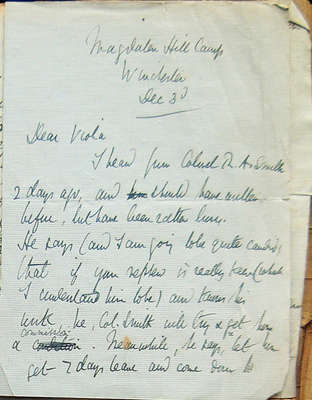 Magdalen Hill Camp
Winchester
Dec 3d
Dear Viola
I heard from Colonel R. A. Smith
2 days ago, and should have written
before, but have been rather busy.
He says (and I am going to be quite candid)
that if your nephew is really keen (which
I understand him to be) and knows his
work he, Col. Smith will try & get him
a commission. Meanwhile, he says, let him
get 7 days leave and come down to